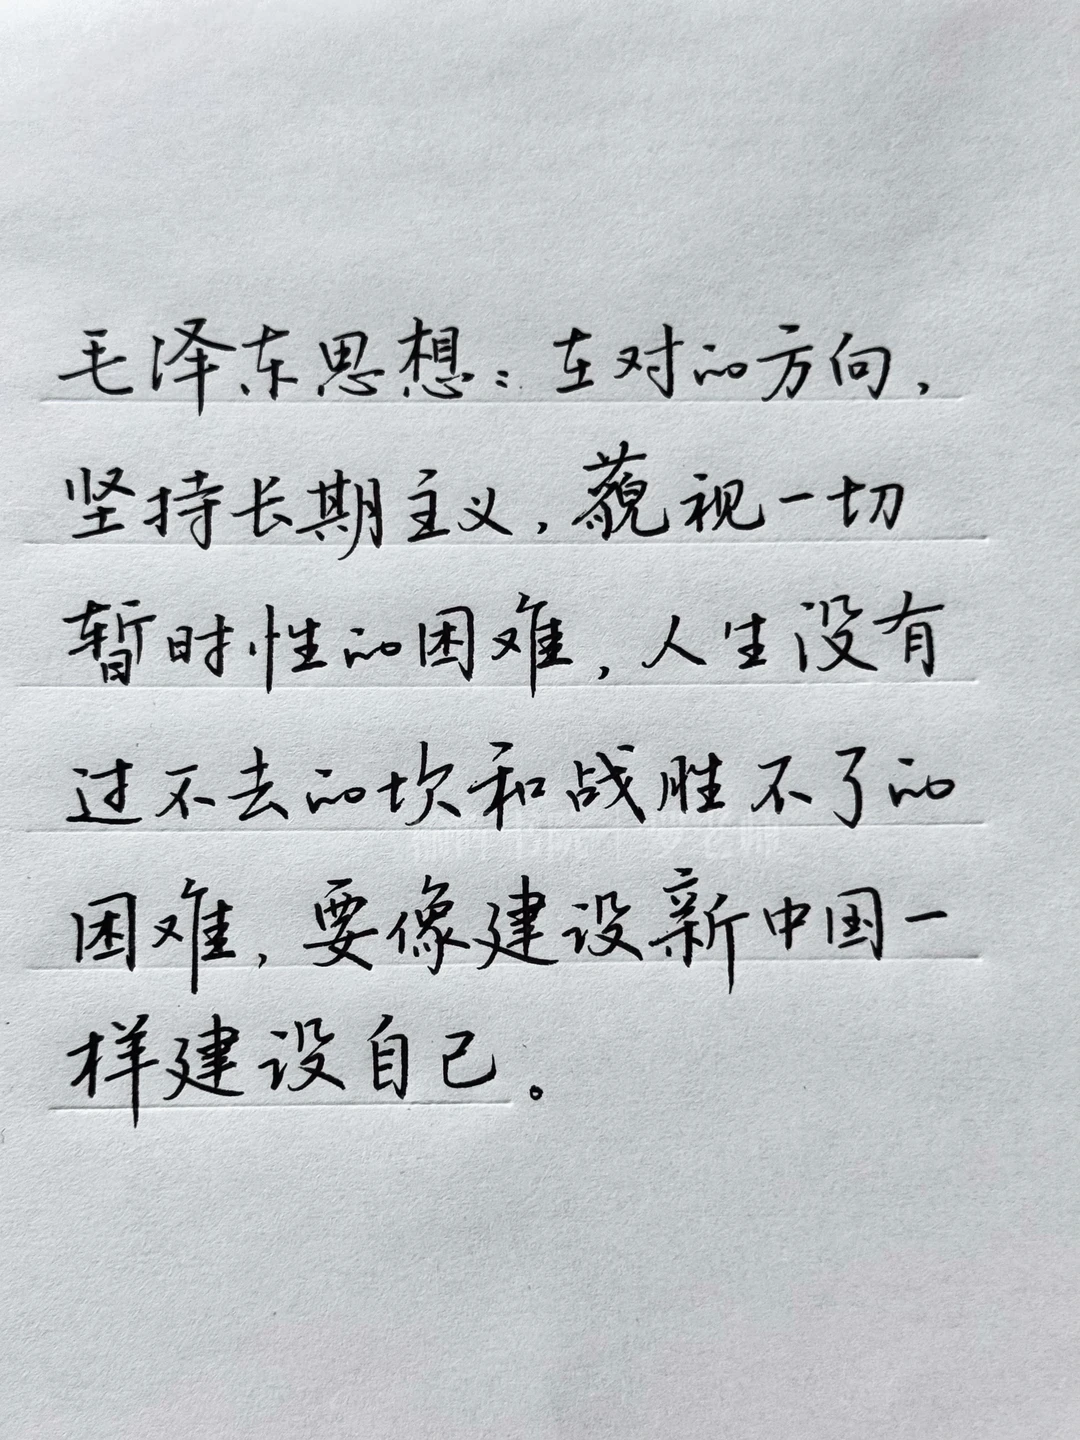 毛泽东思想：在对的方向，
坚持长期主义，藐视一切
暂时性的困难，人生没有
过不去的坎和战胜不了的
困难，要像建设新中国一
样建设自己。